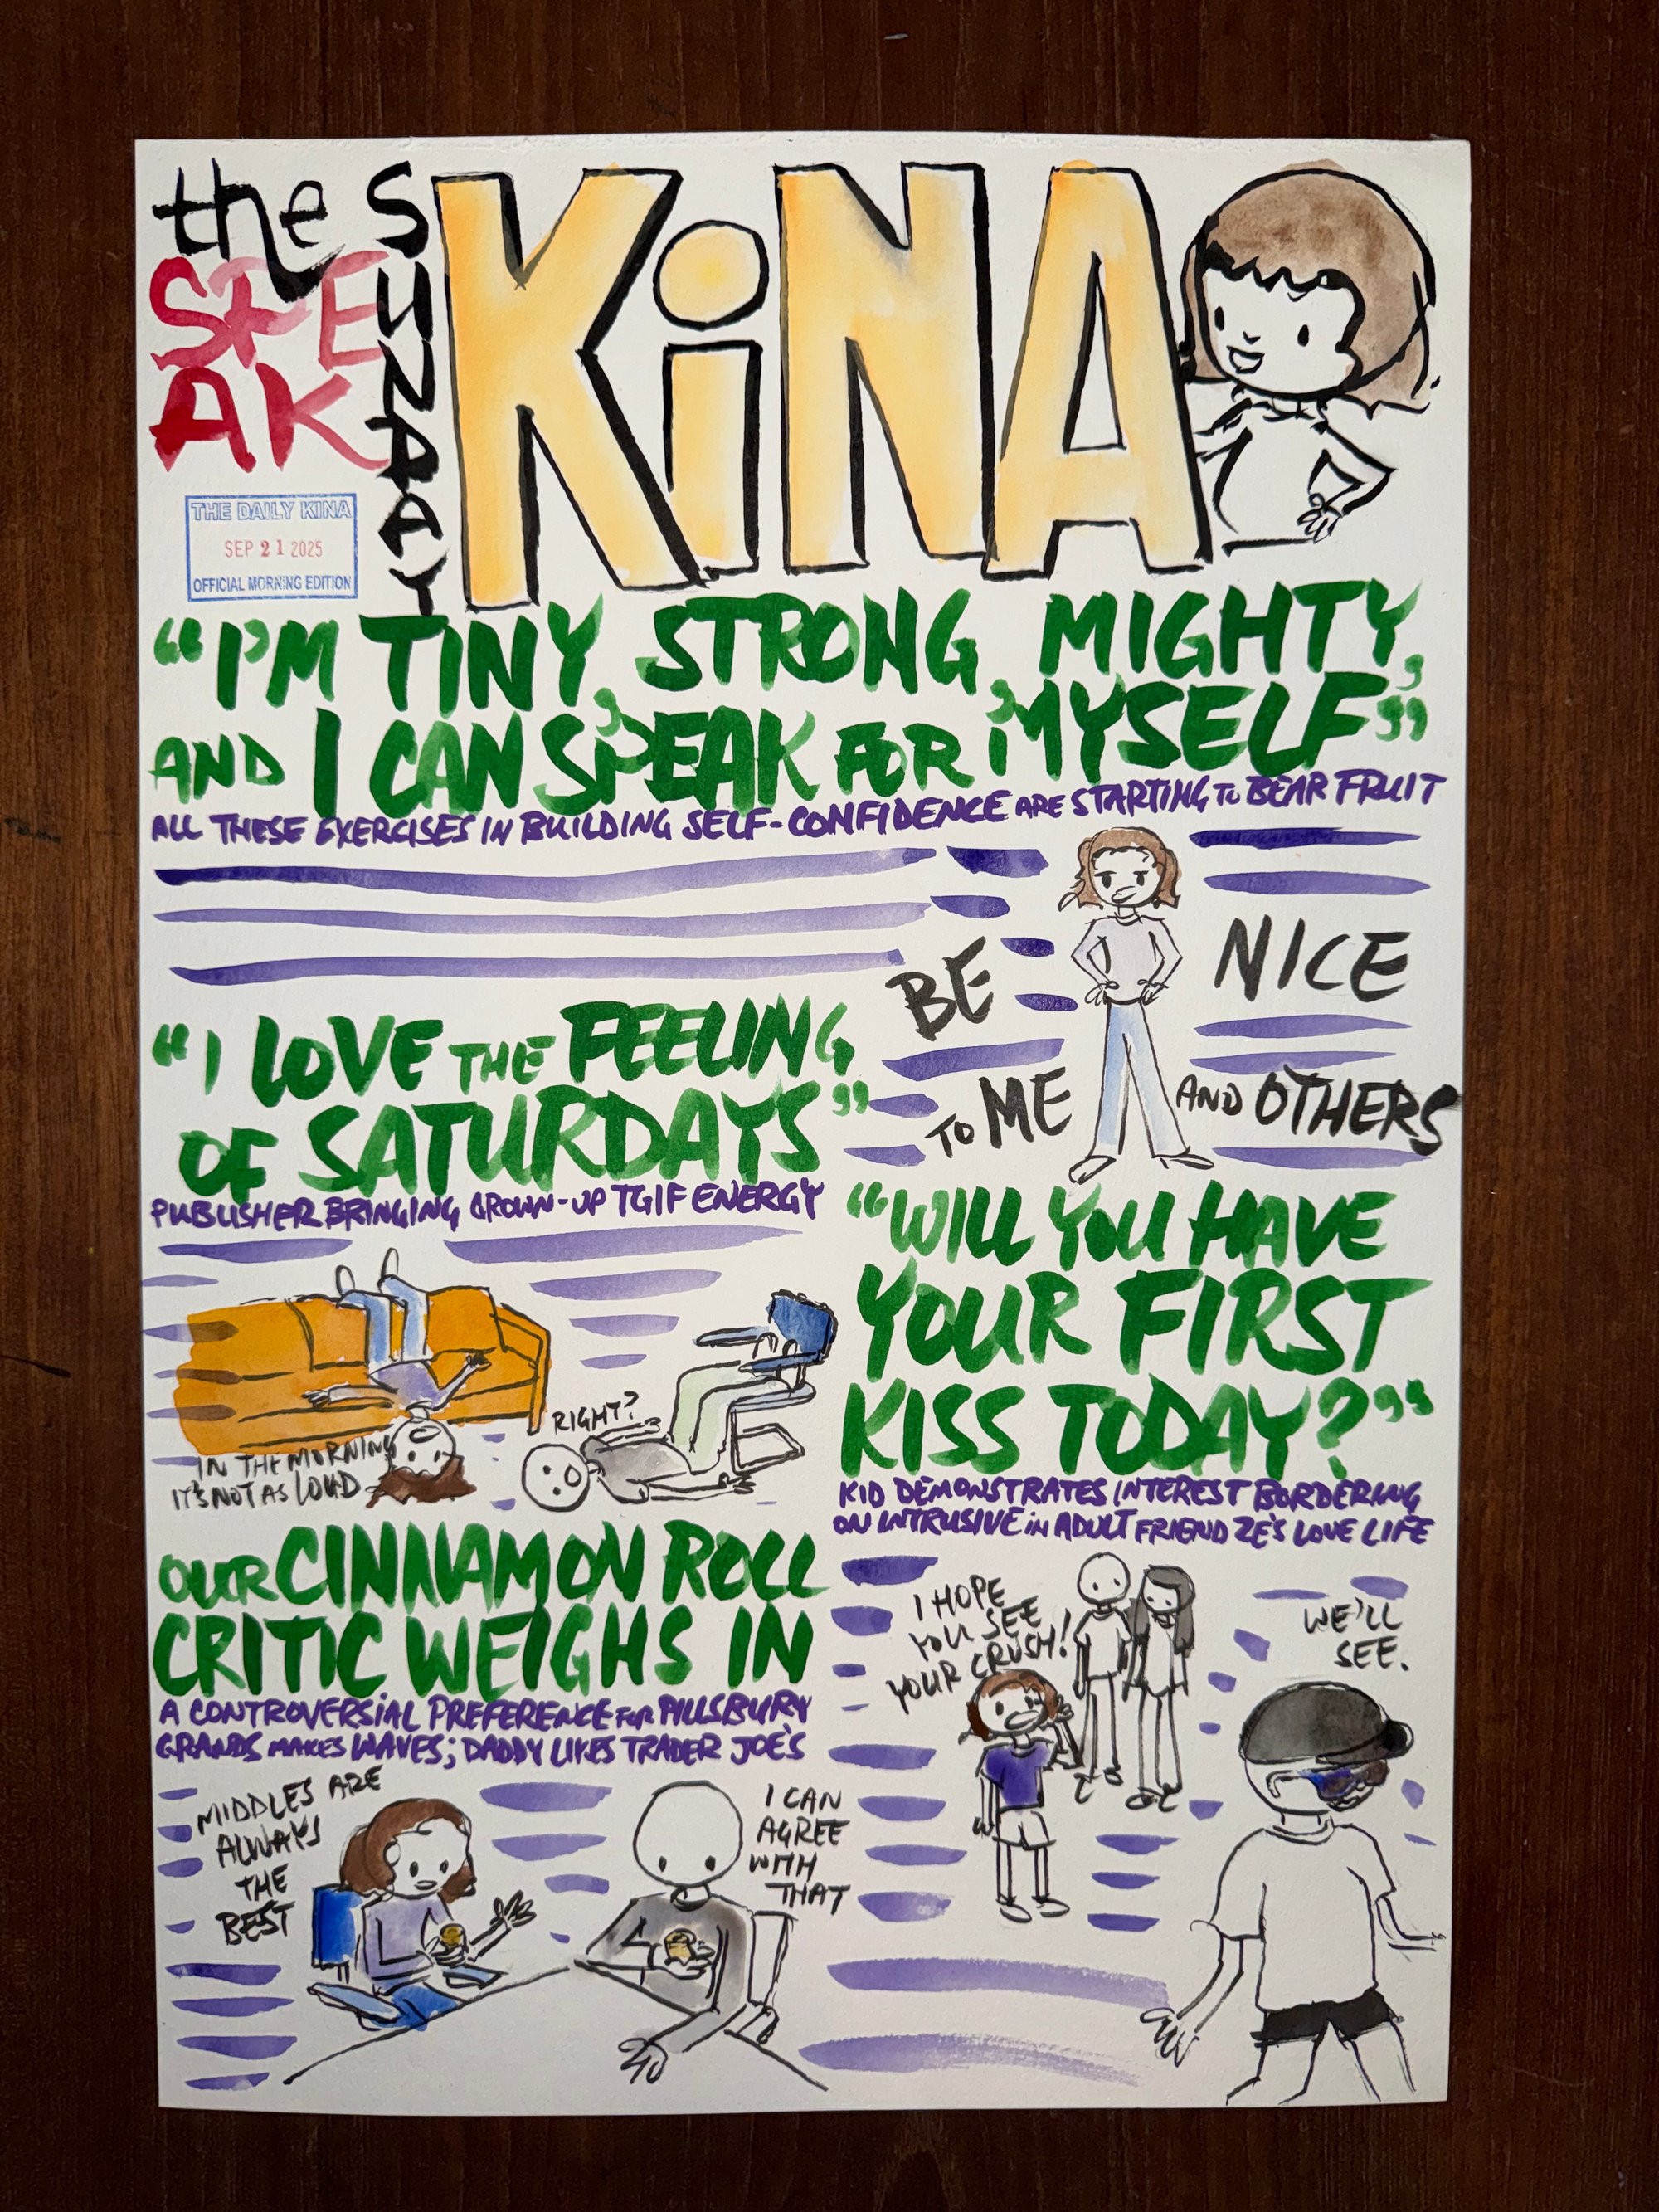 the SUNDAY
SPE
AK
KiNA
THE DAILY KINA
SEP 21 2025
OFFICIAL MORNING EDITION
“I'M TINY, STRONG, MIGHTY,
AND I CAN SPEAK FOR MYSELF”
ALL THESE EXERCISES IN BUILDING SELF-CONFIDENCE ARE STARTING TO BEAR FRUIT
BE
NICE
TO ME
AND OTHERS
“I LOVE THE FEELING
OF SATURDAYS”
PUBLISHER BRINGING GROWN-UP TGIF ENERGY
IN THE MORNING
IT'S NOT AS LOUD
RIGHT?
“WILL YOU HAVE
YOUR FIRST
KISS TODAY?”
KID DEMONSTRATES INTEREST BORDERING
ON INTRUSIVE IN ADULT FRIEND ZE'S LOVE LIFE
I HOPE
YOU SEE
YOUR CRUSH!
WE'LL
SEE.
OUR CINNAMON ROLL
CRITIC WEIGHS IN
A CONTROVERSIAL PREFERENCE FOR PILLSBURY
GRANDS MAKES WAVES; DADDY LIKES TRADER JOE'S
MIDDLES ARE
ALWAYS
THE
BEST
I CAN
AGREE
WITH
THAT